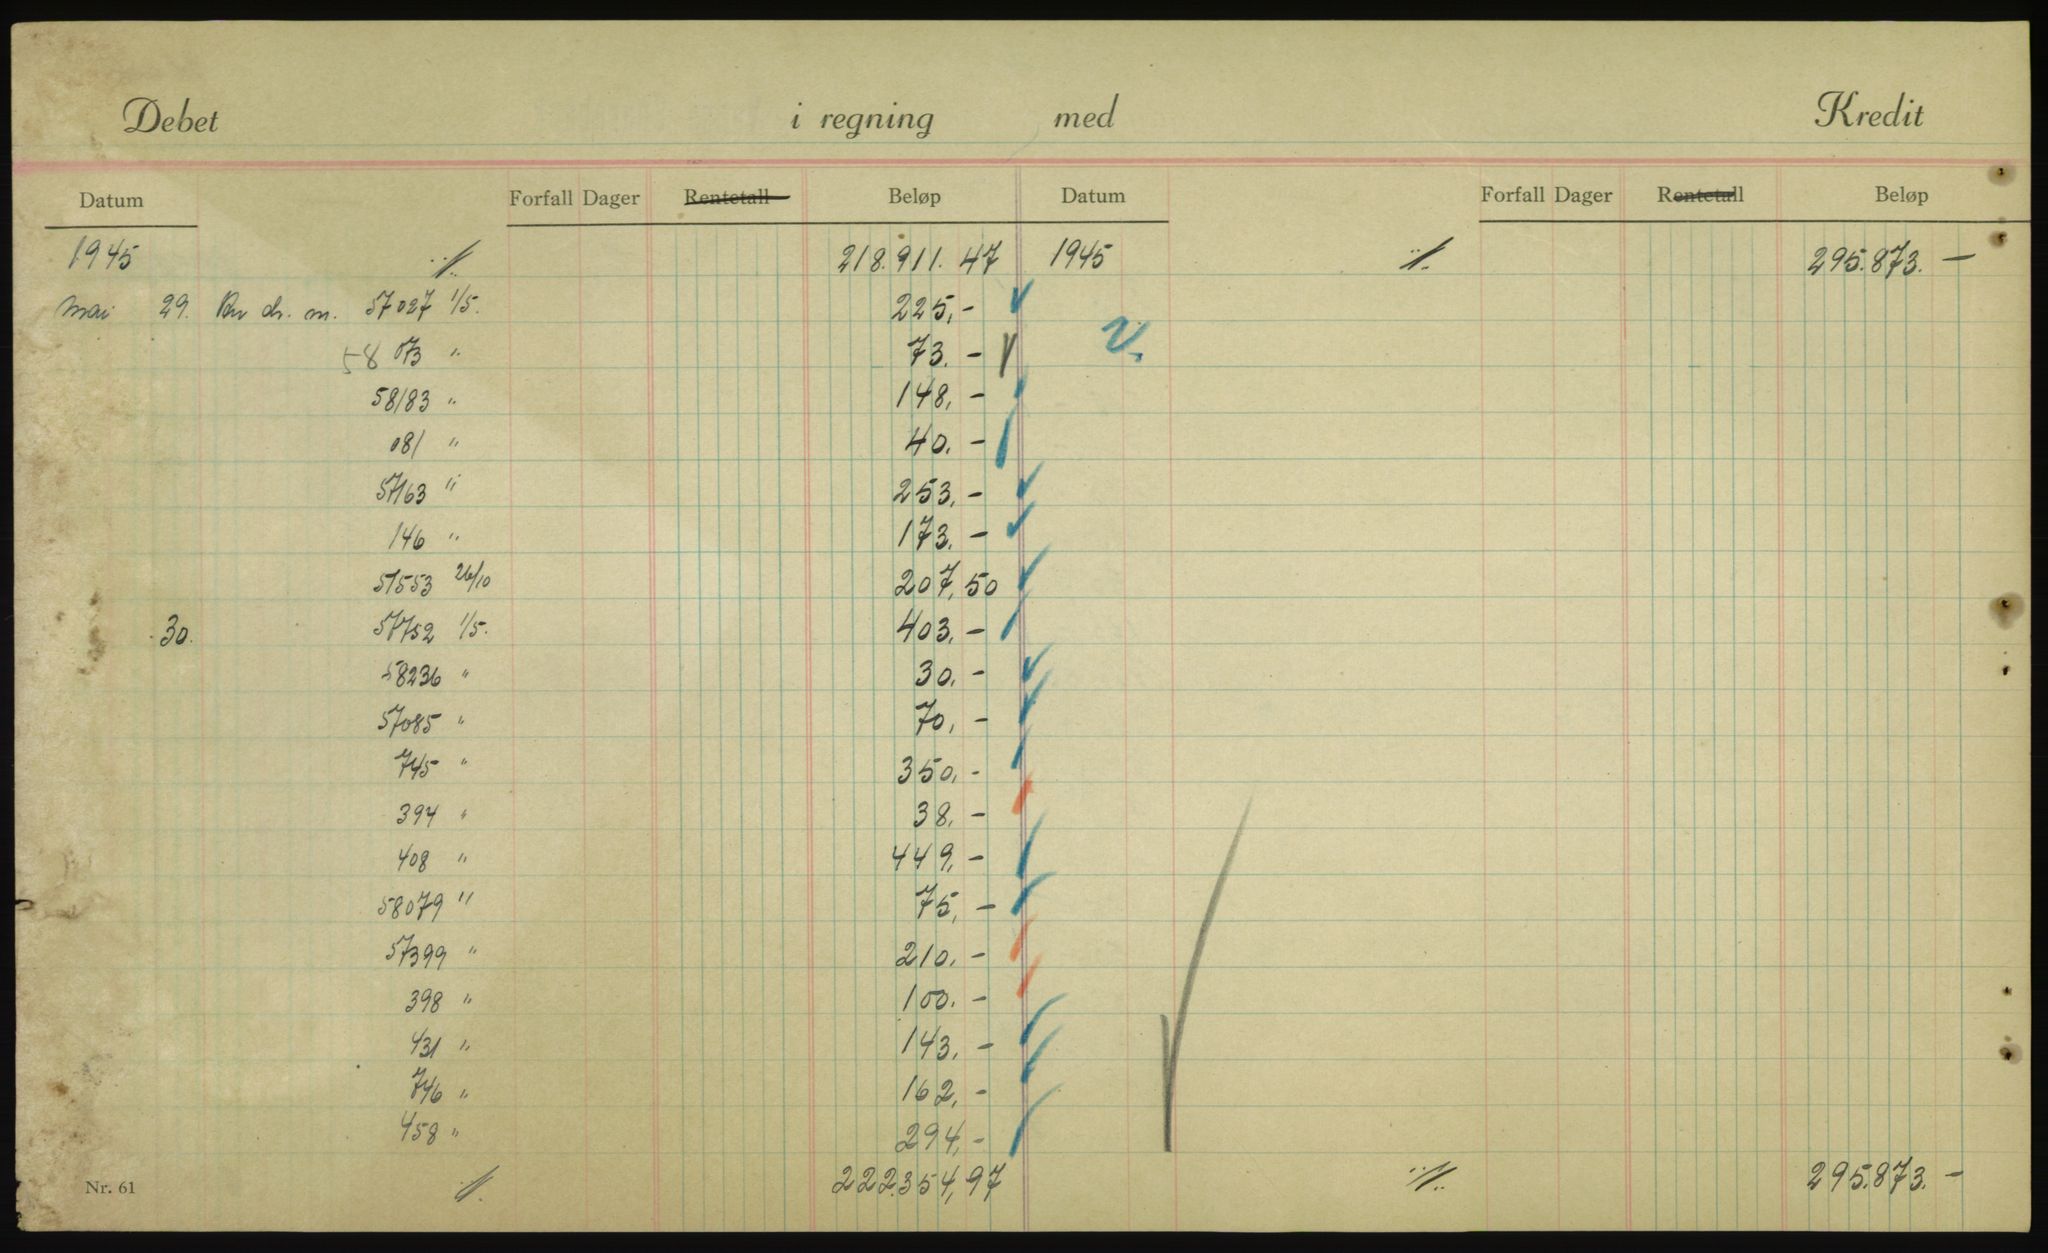 Debet i regning med Kredit
Datum Forfall Dager Rentetall Beløp Datum Forfall Dager Rentetall Beløp
1945 ·/. 218.911.47 1945 ·/. 295.873.—
Mai 29. 57027 1/5. 225,- V.
58073 " 73.-
58183 " 148,-
081 " 40.-
57163 " 253,-
146 " 173.-
57553 26/10 207,50
30. 57752 1/5. 403,-
58236 " 30,-
57085 " 70,-
745 " 350,-
394 " 38,-
408 " 449,-
58079 " 75,-
57399 " 210,-
398 " 100.-
431 " 143,-
746 " 162,-
458 " 294,-
Nr. 61 ·/. 222.354,97 ·/. 295.873.-